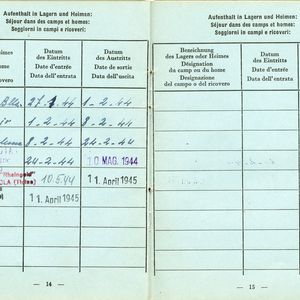 Aufenthalt in Lagern und Heimen:
Séjour dans des camps et homes:
Soggiorni in campi e ricoveri:
Datum
des Eintritts
Date d'entrée
Data dell'entrata
Datum
des Austritts
Date de sortie
Data dell'uscita
1-2-44
1-2-44
8-2-44
8-2-44
24-2-44
24-2-44
10 MAG. 1944
"Rheingold"
10.5.44
11. April 1945
11. April 1945
— 14 —
Aufenthalt in Lagern und Heimen:
Séjour dans des camps et homes:
Soggiorni in campi e ricoveri:
Bezeichnung
des Lagers oder Heimes
Désignation
du camp ou du home
Designazione
del campo o del ricovero
Datum
des Eintritts
Date d'entrée
Data dell'entrata
— 15 —